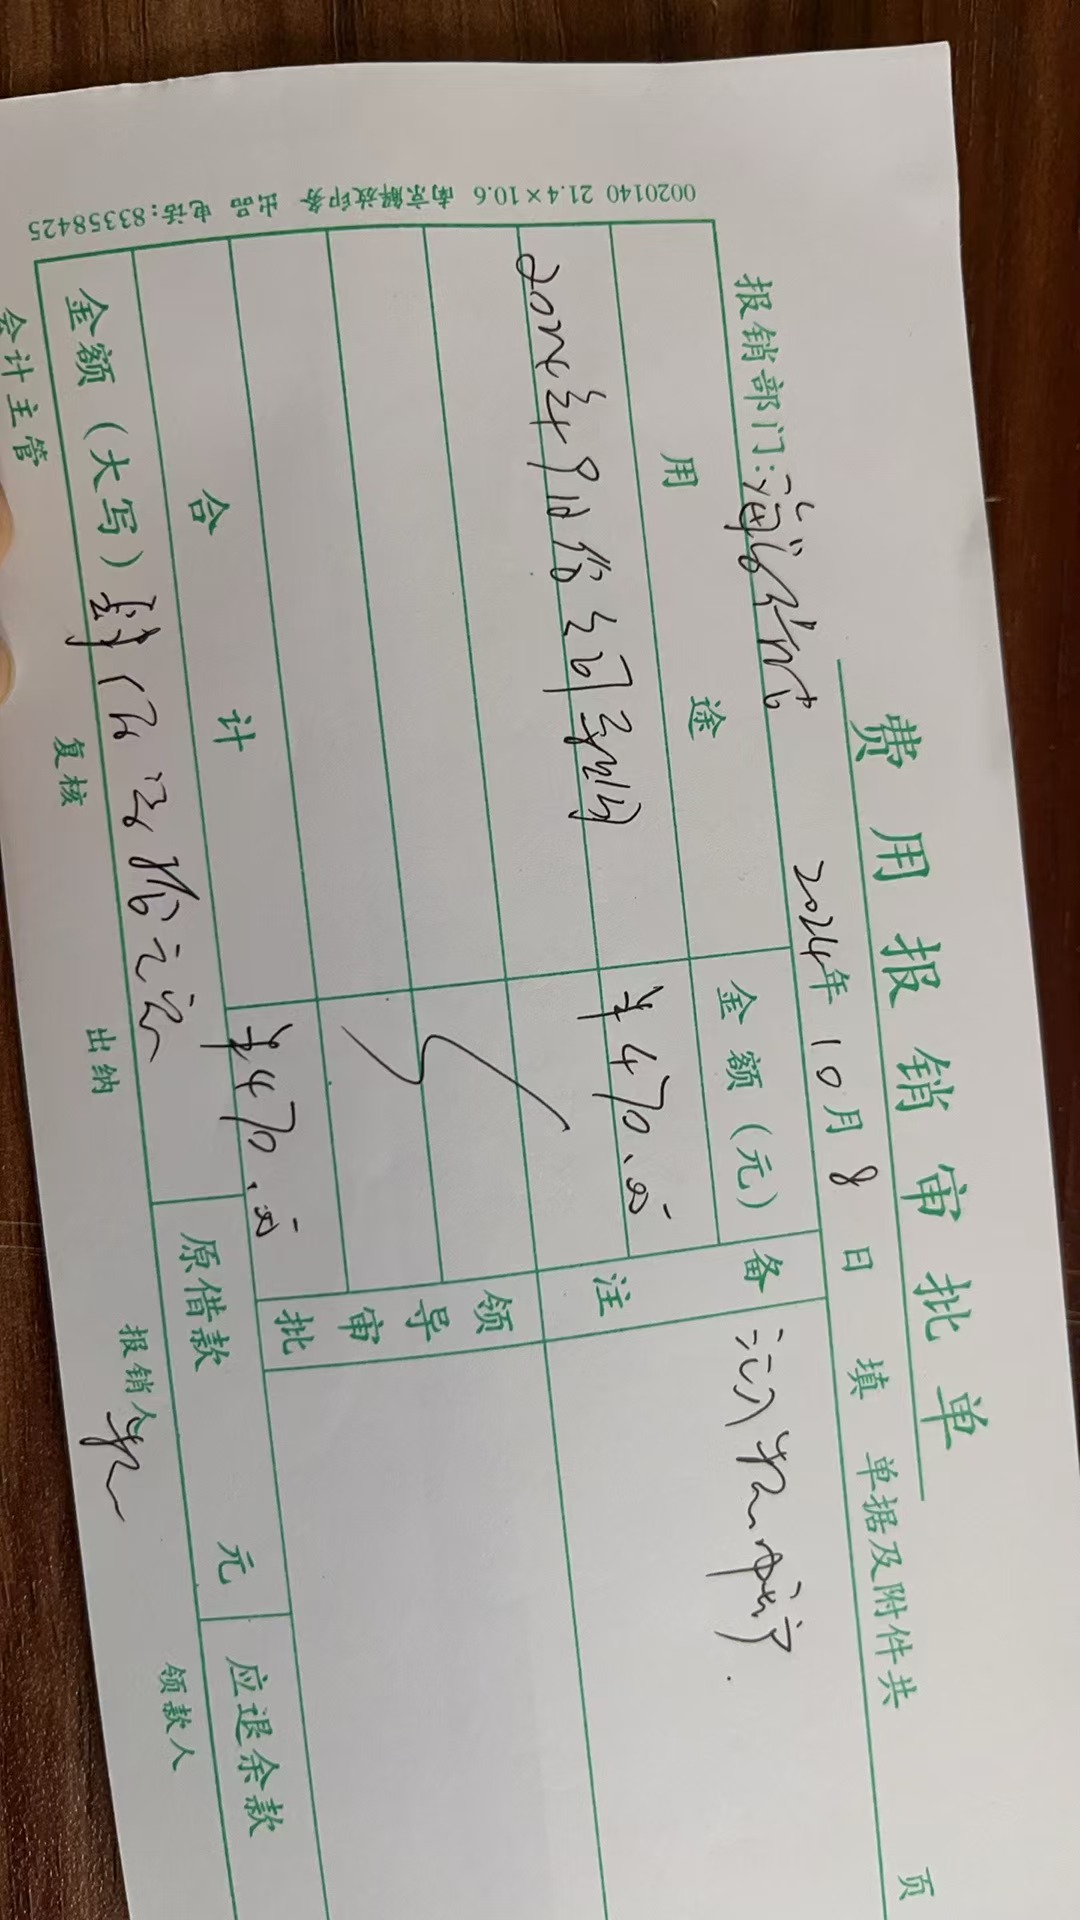 费用报销审批单
报销部门: 2024年10月8日填 单据及附件共 页
用途 金额(元) 备注
2024年9月份 ¥470.00
合计 ¥470.00
领导审批
金额(大写) 肆佰柒拾元 原借款 元 应退余款
会计主管 复核 出纳 报销人 领款人
0020140 21.4×10.6 南京解放印务 出品 电话:83358425